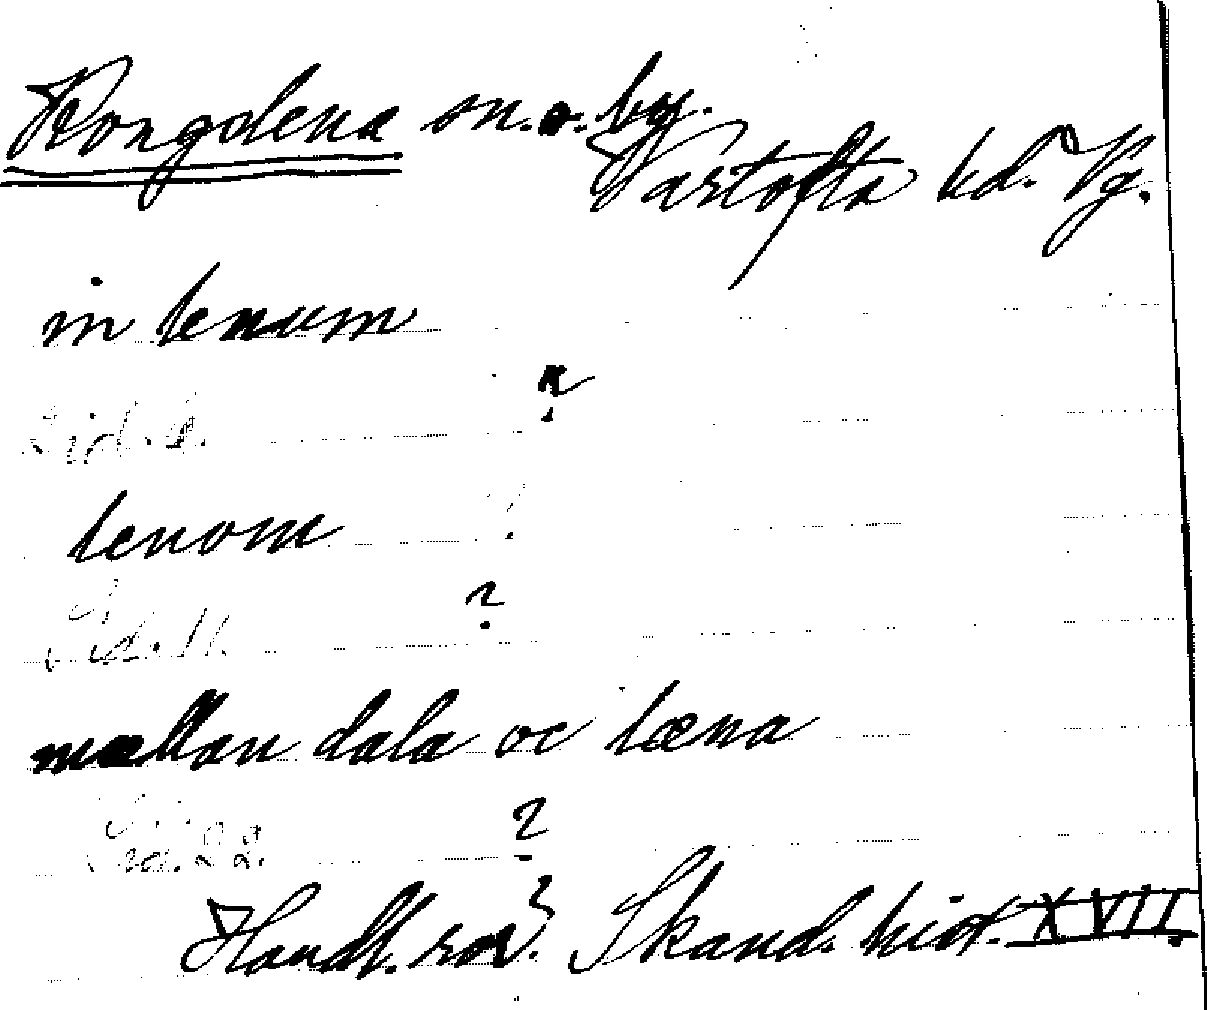 Kongdena sn. o. by.
Vartofta hd. Vg.
in lenum
?
Sid. 8.
lenom ?
?
Sid. 11.
mællan dala oc læna
Sid. 22. ?
Handl. rör. Skand. hist. XVII.